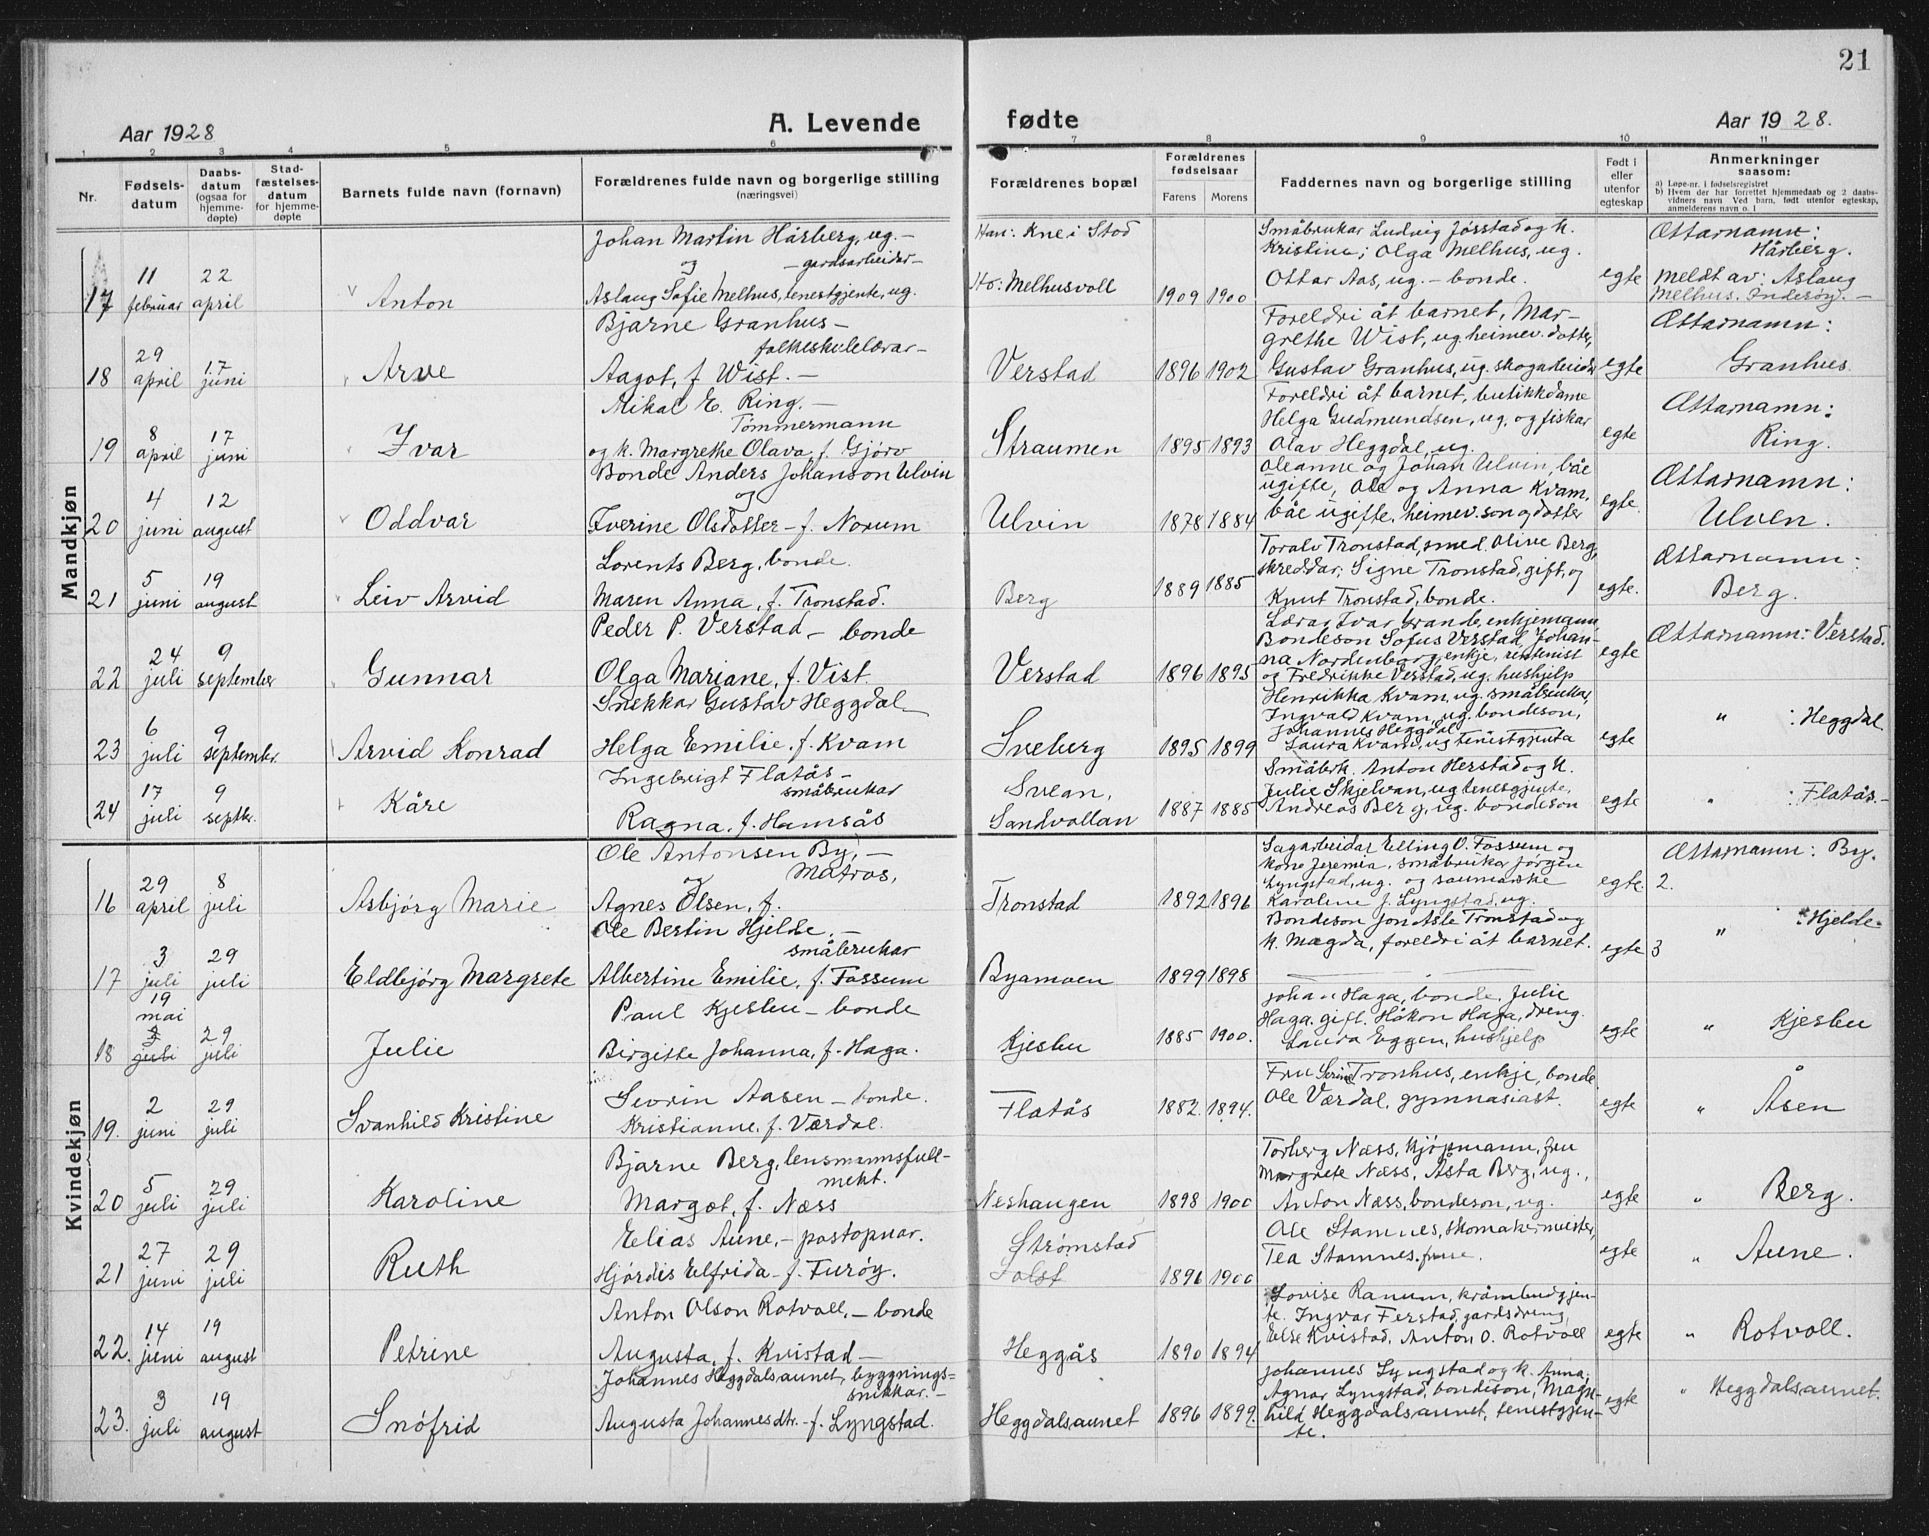 21
Aar 1928
A. Levende
fødte
Aar 1928.
1 2 3 4 5 6 7 8 9 10 11
Nr.
Fødsels-
datum
Daabs-
datum
(ogsaa for
hjemme-
døpte)
Stad-
fæstelses-
datum
for hjemme-
døpte
Barnets fulde navn (fornavn)
Forældrenes fulde navn og borgerlige stilling
(næringsvei)
Forældrenes bopæl
Forældrenes
fødselsaar
Farens Morens
Faddernes navn og borgerlige stilling
Født i
eller
utenfor
egteskap
Anmerkninger
saasom:
a) Løpe-nr. i fødselsregistret
b) Hvem der har forrettet hjemmedaab og 2 daabs-
vidners navn Ved barn, født utenfor egteskap,
anmelderens navn o. l
Mandkjøn
17
11
februar
22
april
Anton
Johan Martin Hårberg, ug. -
og - gardsarbeider -
Aslaug Sofie Melhus, tenestgjente, ug.
Han: Kne i Stod
Ho: Melhusvoll
1909 1900
Småbrukar Ludvig Jørstad og k.
Kristine; Olga Melhus, ug.
Ottar Aas, ug. - bonde.
egte
Ættarnamn:
Hårberg.
Meldt av: Aslaug
Melhus, Inderøy. -
18
29
april
17
juni
Arve
Bjarne Granhus -
folkeskulelærar -
Aagot, f. Wist. -
Verstad
1896 1902
Foreldri åt barnet, Mar-
grethe Wist, ug. heimev. dotter,
Gustav Granhus, ug. skogarbeider
egte
Ættarnamn:
Granhus.
19
8
april
17
juni
Ivar
Mikal E. Ring. -
Tömmermann
og k. Margrethe Olava, f. Gjörv
Straumen
1895 1893
Foreldri åt barnet, butikkdame
Helga Gudmundsen, ug, og fiskar
Olav Heggdal, ug.
egte
Ættarnamn:
Ring.
20
4
juni
12
august
Oddvar
Bonde Anders Johanson Ulvin
og
Iverine Olsdotter - f. Norum
Ulvin
1878 1884
Oleanne og Johan Ulvin, båe
ugifte, Ole og Anna Kvam,
båe ugifte, heimev. son og dotter
egte.
Ættarnamn:
Ulven.
21
5
juni
19
august
Leiv Arvid
Lorents Berg, bonde.
Maren Anna, f. Tronstad.
Berg
1889 1885
Toralv Tronstad, smed. Olive Berg,
skreddar; Signe Tronstad, gift, og
Knut Tronstad, bonde.
egte.
Ættarnamn:
Berg.
22
24
juli
9
september
Gunnar
Peder P. Verstad - bonde
Olga Mariane, f. Vist.
Verstad
1896 1895
Lærar Ivar Grande, enkjemann
Bondeson Sofus Verstad, Johan-
na Nordenborg, enkje, rentenist
og Fredrikke Verstad, ug. hushjelp
egte
Ættarnamn: Verstad.
23
6
juli
9
septembr.
Arvid Konrad
Snekkar Gustav Heggdal
Helga Emilie, f. Kvam
Sveberg
1895 1899
Henrikka Kvam, ug. småbrukar,
Ingvald Kvam, ug. bondeson,
Johannes Heggdal,
Laura Kvam, ug tenestgjenta
egte
" : Heggdal
24
17
juli
9
septbr.
Kåre
Ingebrigt Flatås -
småbrukar
Ragna, f. Hamsås
Svean,
Sandvollan
1887 1885
Småbrk. Anton Herstad og k.
Julie Skjelvan, ug tenesgjente,
Andreas Berg, ug. bondeson
egte
" : Flatås. -
Kvindekjøn
16
29
april
8
juli
Asbjörg Marie
Ole Antonsen By, -
og Matros,
Agnes Olsen, f.
Tronstad
1892 1896
Sagarbeidar Elling O. Fossum og
kone Jeremia, småbrukar Jørgen
Lyngstad, ug. og saumarske
Karoline f. Lyngstad, ug.
egte.
Ættarnamn: By.
2.
17
3
juli
29
juli
Eldbjörg Margrete
Ole Bertin Hjelde. -
småbrukar
Albertine Emilie, f. Fossum
Byamoen
1899 1898
Bondeson Jon Asle Tronstad og
k. Magda, foreldri åt barnet.
egte
" : Hjelde -
3
18
19
mai
3
juli
29
juli
Julie
Paul Kjesbu - bonde
Birgitte Johanna, f. Haga.
Kjesbu
1885 1900.
Johan Haga, bonde, Julie
Haga gift. Håkon Haga, dreng.
Laura Eggen, hushjelp
egte
" Kjesbu
19.
2
juni
29
juli
Svanhild Kristine
Sevrin Aasen - bonde.
Kristianne, f. Værdal.
Flatås
1882. 1894.
Fru Serine Tronhus, enkje, bonde
Ole Værdal, gymnasiast.
egte
" Åsen
20
5
juli
29
juli
Karoline
Bjarne Berg, lensmannsfull-
mekt.
Margot, f. Næss
Neshaugen
1898 1900
Torberg Næss, kjøpmann, fru
Margrete Næss, Åsta Berg, ug.,
Anton Næss, bondeson, ug.
egte
" Berg.
21
27
juni
29
juli
Ruth
Elias Aune, - postopnar.
Hjördis Elfrida - f. Furöy.
Strømstad
1896 1900
Ole Stamnes, skomakermeister,
Tea Stamnes. frue.
egte
" Aune.
22.
14
juni
19
august
Petrine
Anton Olson Rotvoll, - bonde
Augusta, f. Kvistad -
Heggås
1890 1894
Lovise Ranum, krambudgjen-
te. Ingvar Ferstad, gardsdreng,
Else Kvistad, Anton O. Rotvoll
egte
" Rotvoll.
23.
3
juli
19
august
Snöfrid
Johannes Heggdalsaunet, byggnings-
snikkar. -
Augusta Johannesdtr. - f. Lyngstad.
Heggdalsaunet
1896 1899.
Johannes Lyngstad og k. Anna,
Agnar Lyngstad, bondeson, Magn-
hild Heggdalsaunet, tenestgjen-
te.
egte
" Heggdalsaunet.